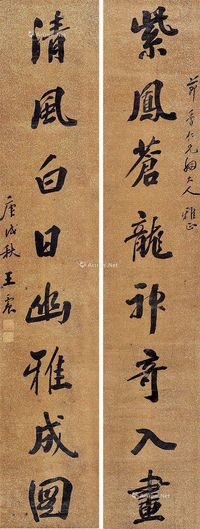 紫鳳蒼龍神奇入畫
仁兄姻大人 雅正
清風白日幽雅成圖
庚戌秋 王震